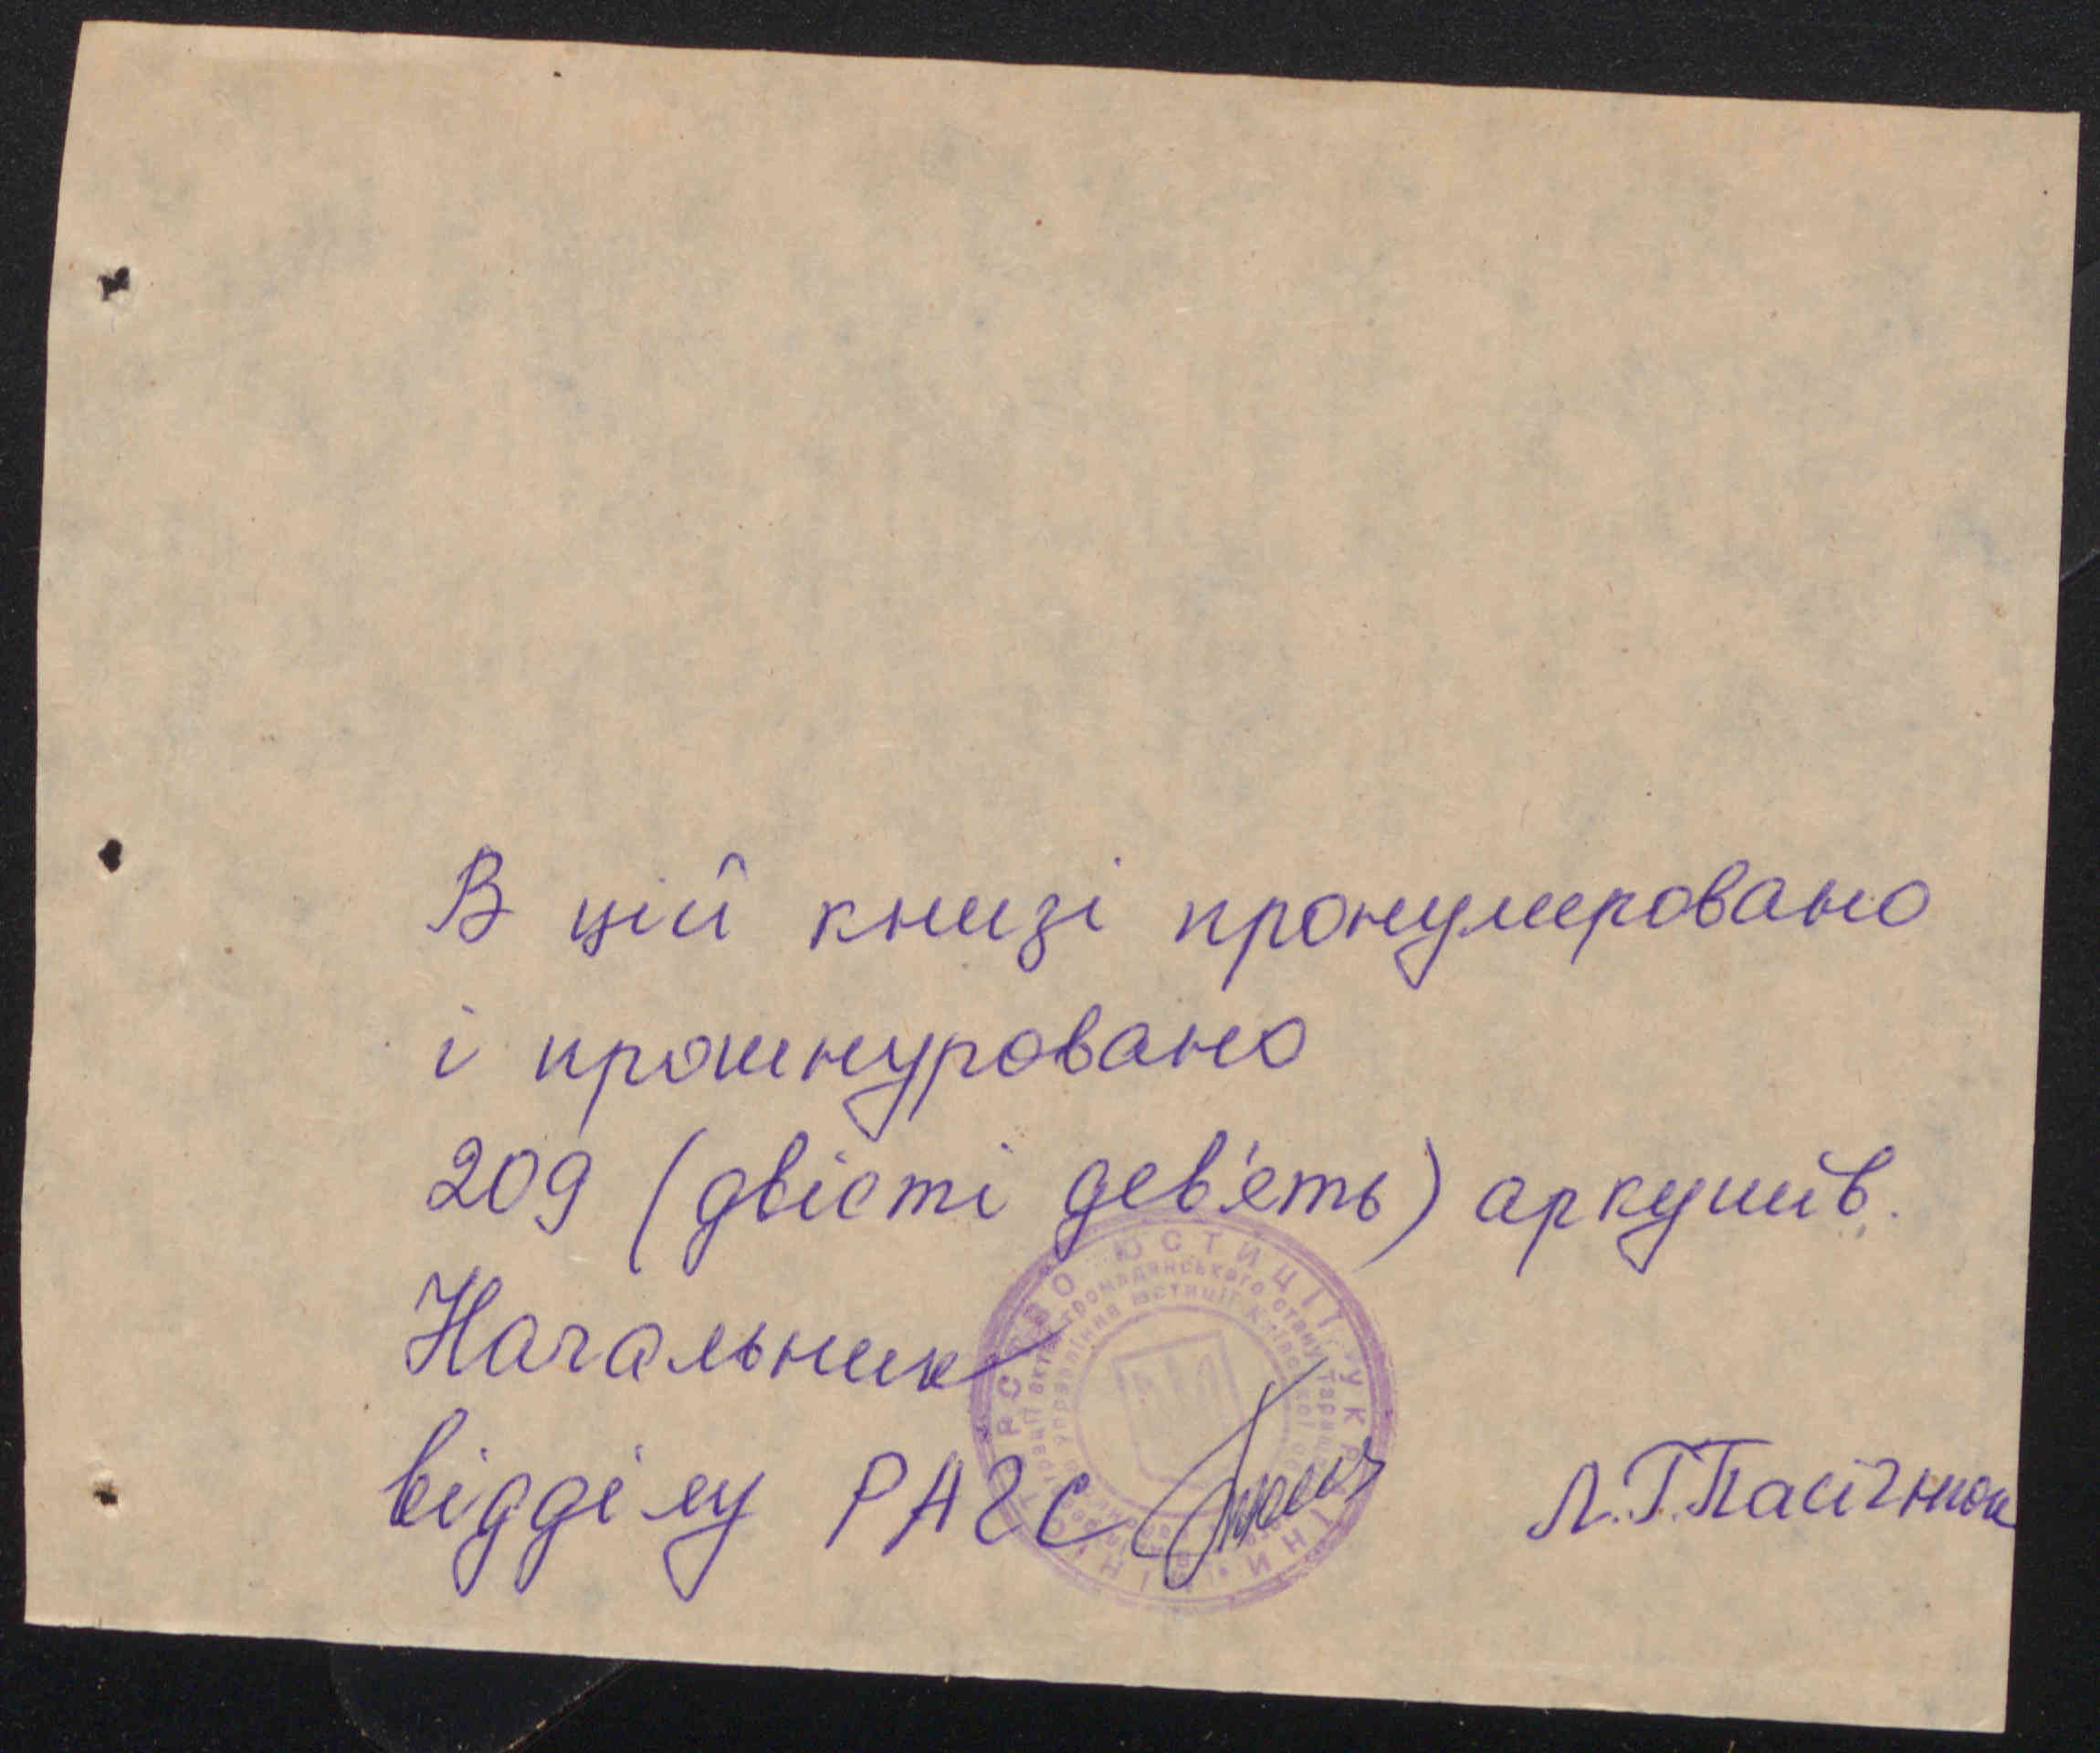 В цій книзі пронумеровано
і прошнуровано
209 (двісті дев'еть) аркушів.
Начальник
відділу РАГС Л.Г. Пасічнюк
ЮСТИЦІЇ УКРАЇНИ
громадянського стану
управління юстиції Київської